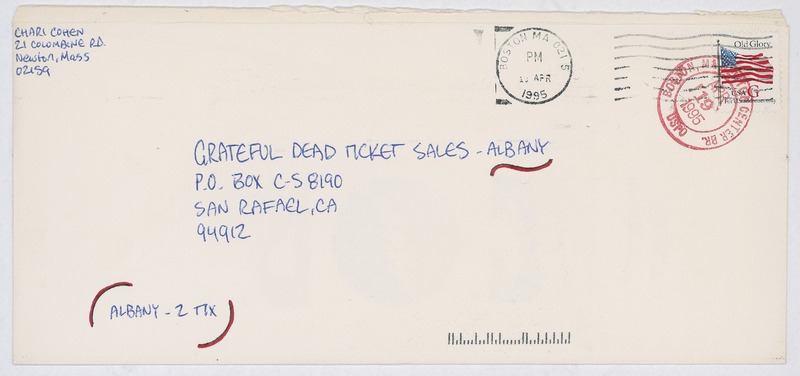 CHARI COHEN
21 COLOMBINE RD.
Newton, Mass
02159
BOSTON MA 021
PM
APR
1995
Old Glory
USA G
BOSTON, MA
19
1995
CENTER BR.
USPO
GRATEFUL DEAD TICKET SALES - ALBANY
P.O. BOX C-S 8190
SAN RAFAEL, CA
94912
ALBANY - 2 TIX